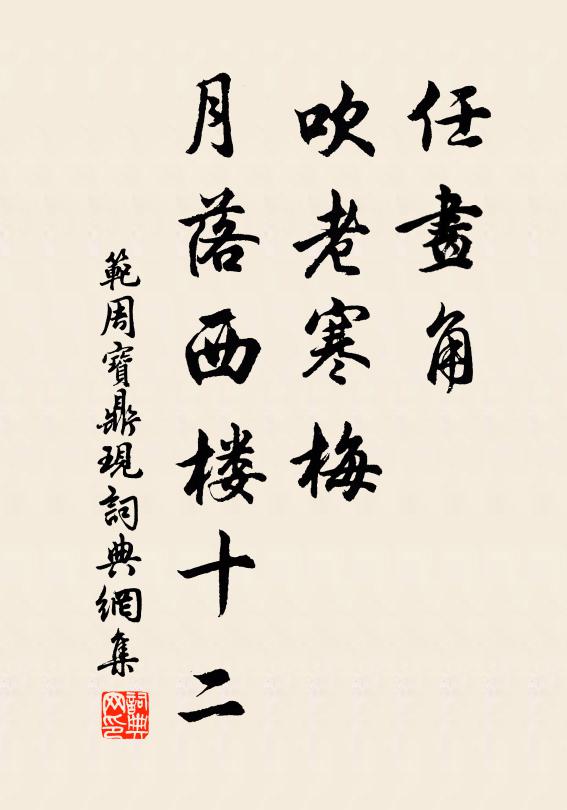 任畫角
吹老寒梅
月落西楼十二
範周寶鼎現詞典網集
詞典
网印